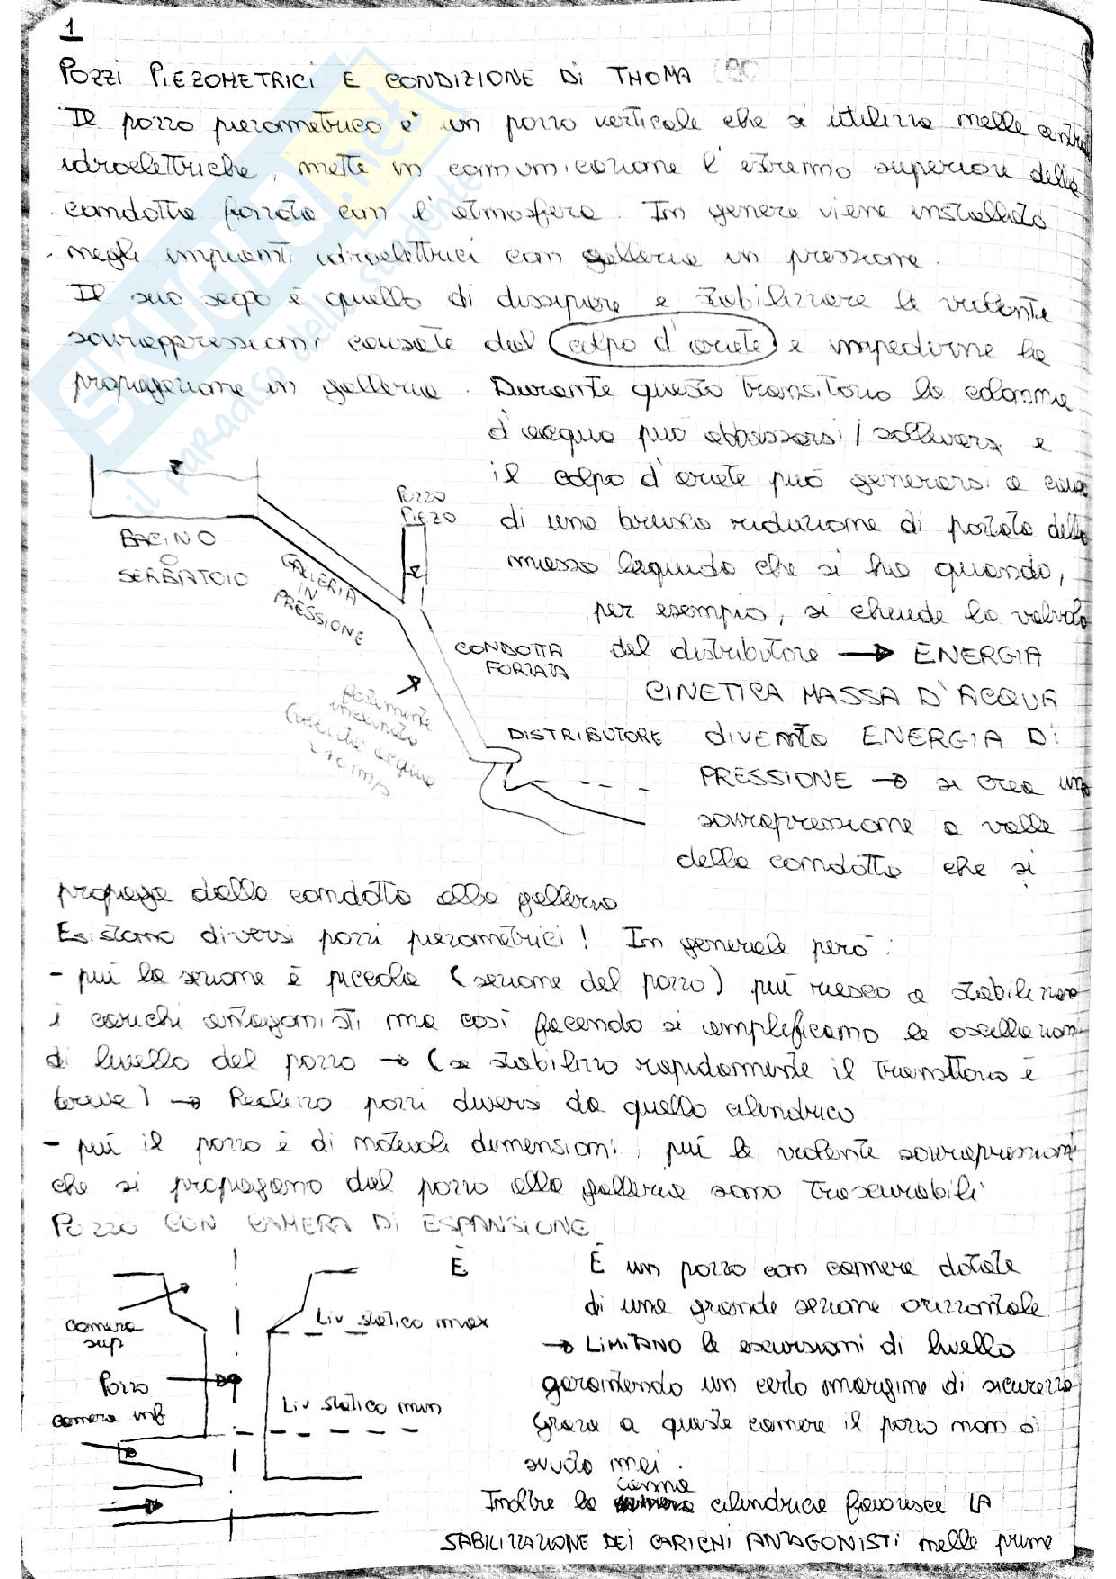 1
POZZI PIEZOMETRICI E CONDIZIONE DI THOMA
Il pozzo piezometrico è un pozzo verticale che si utilizza nelle centrali
idroelettriche, mette in comunicazione l'estremo superiore della
condotta forzata con l'atmosfera. In genere viene installato
negli impianti idroelettrici con galleria in pressione.
Il suo scopo è quello di dissipare e stabilizzare le violente
sovrappressioni causate dal colpo d'ariete e impedirne la
propagazione in galleria. Durante questo transitorio la colonna
d'acqua può abbassarsi / sollevarsi e
il colpo d'ariete può generarsi a causa
di una brusca riduzione di portata della
massa liquida che si ha quando,
per esempio, si chiude la valvola
del distributore → ENERGIA
CINETICA MASSA D'ACQUA
diventa ENERGIA DI
PRESSIONE → si crea una
sovrapressione a valle
della condotta che si
propaga dalla condotta alla galleria
BACINO
O
SERBATOIO
GALLERIA
IN
PRESSIONE
POZZO
PIEZO
CONDOTTA
FORZATA
DISTRIBUTORE
Esistono diversi pozzi piezometrici! In generale però:
- più la sezione è piccola (sezione del pozzo) più riesco a stabilizzare
i carichi antagonisti ma così facendo si amplificano le oscillazioni
di livello del pozzo → (se stabilizzo rapidamente il transitorio è
breve) → Realizzo pozzi diversi da quello cilindrico
- più il pozzo è di notevoli dimensioni, più le violente sovrapressioni
che si propagano dal pozzo alla galleria sono trascurabili
POZZO CON CAMERA DI ESPANSIONE
È
È un pozzo con camere dotate
di una grande sezione orizzontale
→ LIMITANO le escursioni di livello
garantendo un certo margine di sicurezza
Grazie a queste camere il pozzo non si
svuota mai.
Inoltre la canna cilindrica favorisce LA
STABILIZZAZIONE DEI CARICHI ANTAGONISTI nelle prime
camera
sup
Liv statico max
Pozzo
camera inf
Liv statico min
skuola.net
il paradiso dello studente